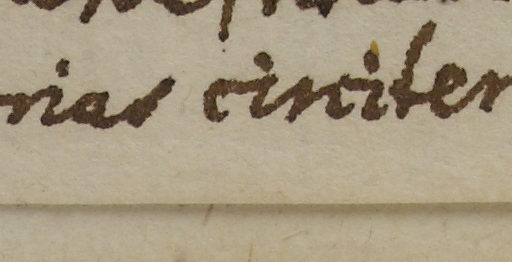 rias circiter